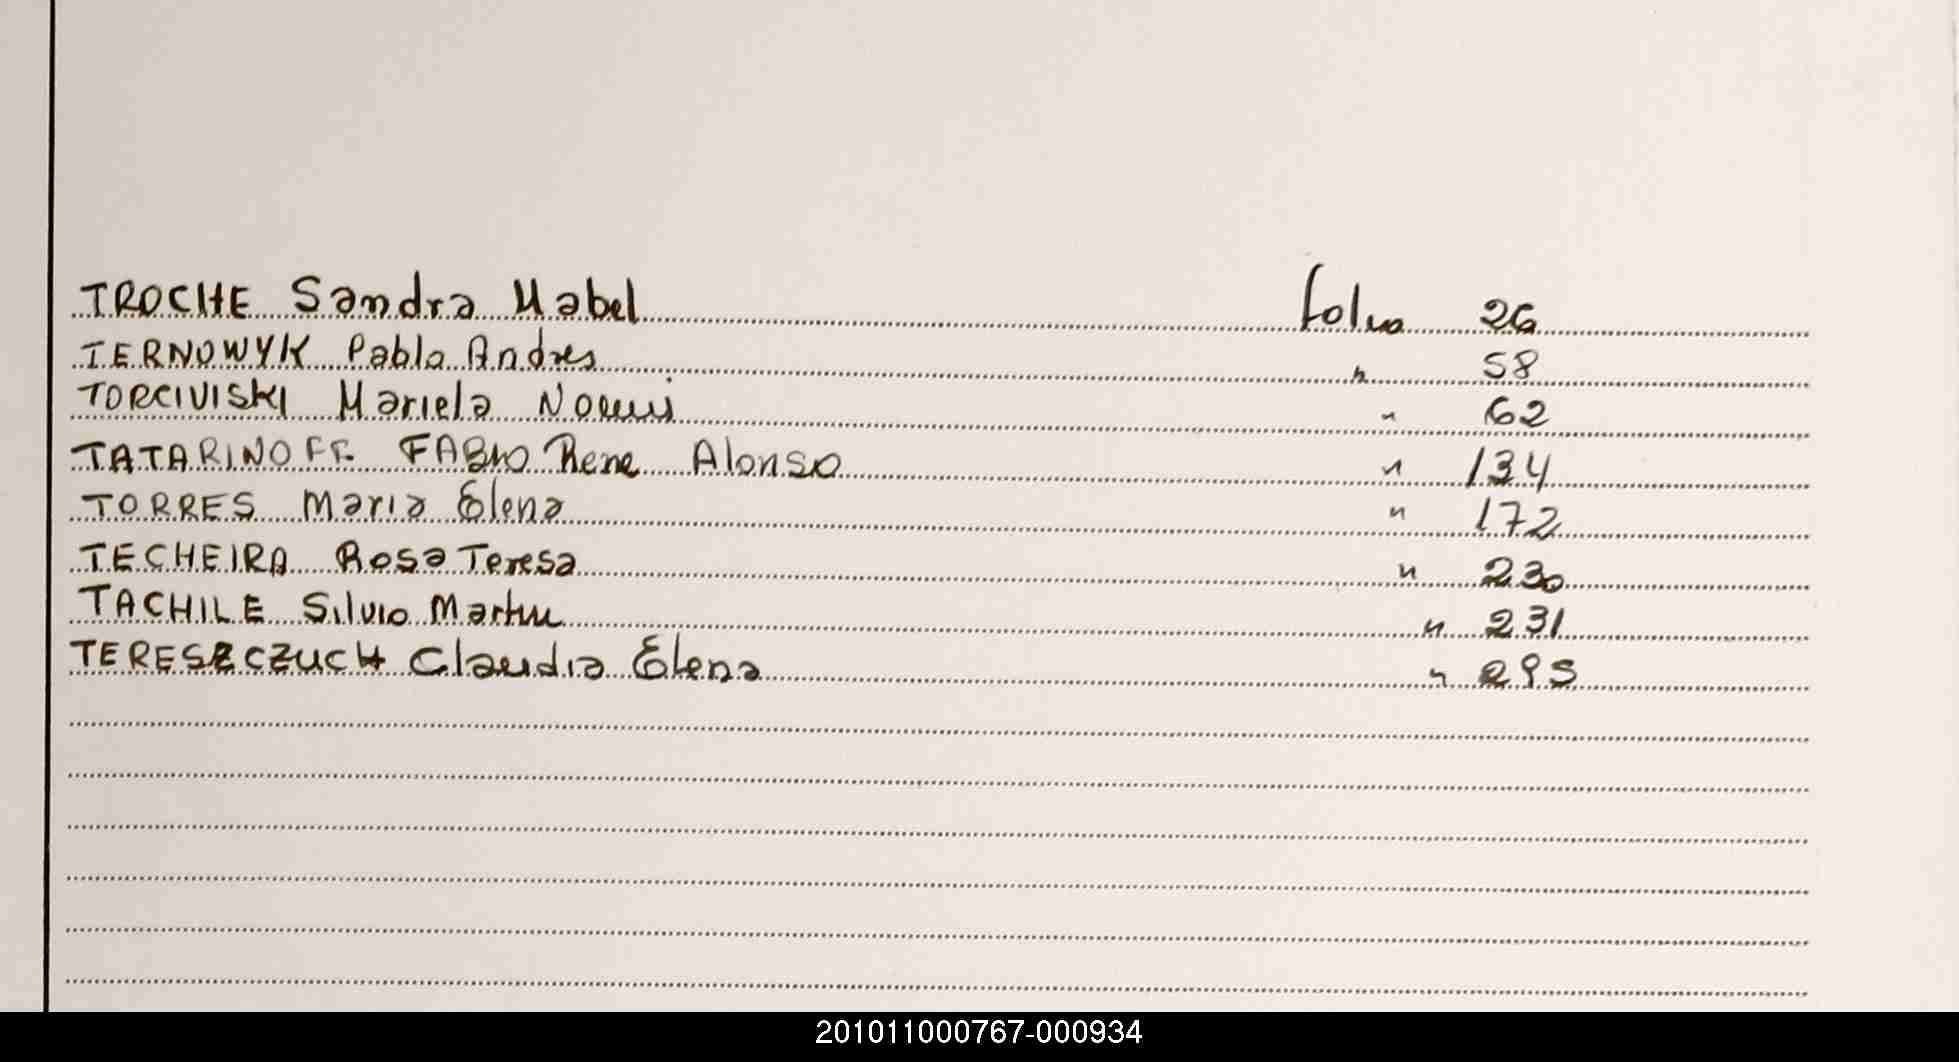 TROCHE Sandra Mabel folio 26
TERNOWYK Pablo Andres " 58
TORCIVISKI Mariela Noemi " 62
TATARINOFF FABIO Rene Alonso " 134
TORRES Maria Elena " 172
TECHEIRA Rosa Teresa " 230
TACHILE Silvio Martin " 231
TERESZCZUCH Claudia Elena " 295
201011000767-000934